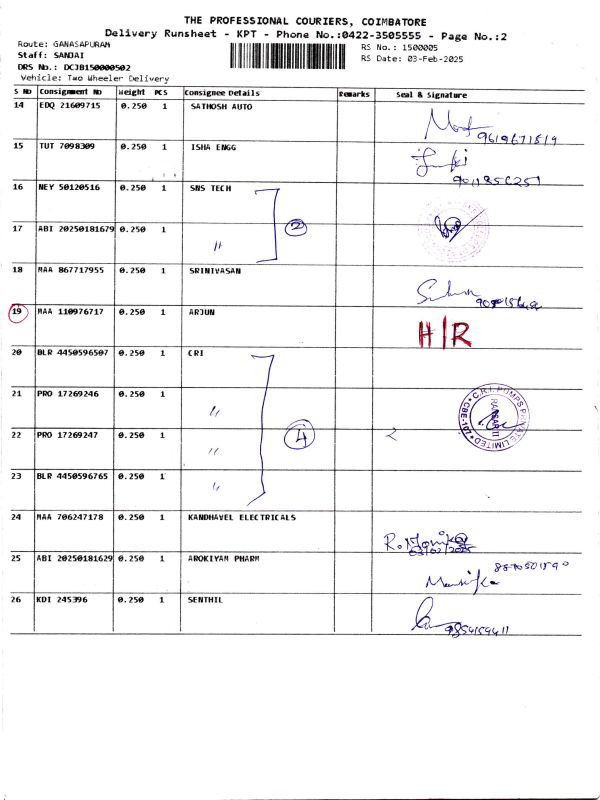 THE PROFESSIONAL COURIERS, COIMBATORE
Delivery Runsheet - KPT - Phone No.:0422-3505555 - Page No.:2
Route: GANASAPURAM
Staff: SANJAI
DRS No.: DCJB150000502
Vehicle: Two Wheeler Delivery
RS No.: 1500005
RS Date: 03-Feb-2025
S NO Consignment No Weight PCS Consignee Details Remarks Seal & Signature
14 EDQ 21609715 0.250 1 SATHOSH AUTO
9619671519
15 TUT 7098309 0.250 1 ISHA ENGG
16 NEY 50120516 0.250 1 SNS TECH
2
17 ABI 20250181679 0.250 1 "
18 MAA 867717955 0.250 1 SRINIVASAN
19 MAA 110976717 0.250 1 ARJUN H/R
20 BLR 4450596507 0.250 1 CRI
21 PRO 17269246 0.250 1 "
C.R.I. PUMPS PRIVATE LIMITED
22 PRO 17269247 0.250 1 " 4
23 BLR 4450596765 0.250 1 "
24 MAA 706247178 0.250 1 KANDHAVEL ELECTRICALS
R. Monika
03/02/2025
25 ABI 20250181629 0.250 1 AROKIYAM PHARM
26 KDI 245396 0.250 1 SENTHIL